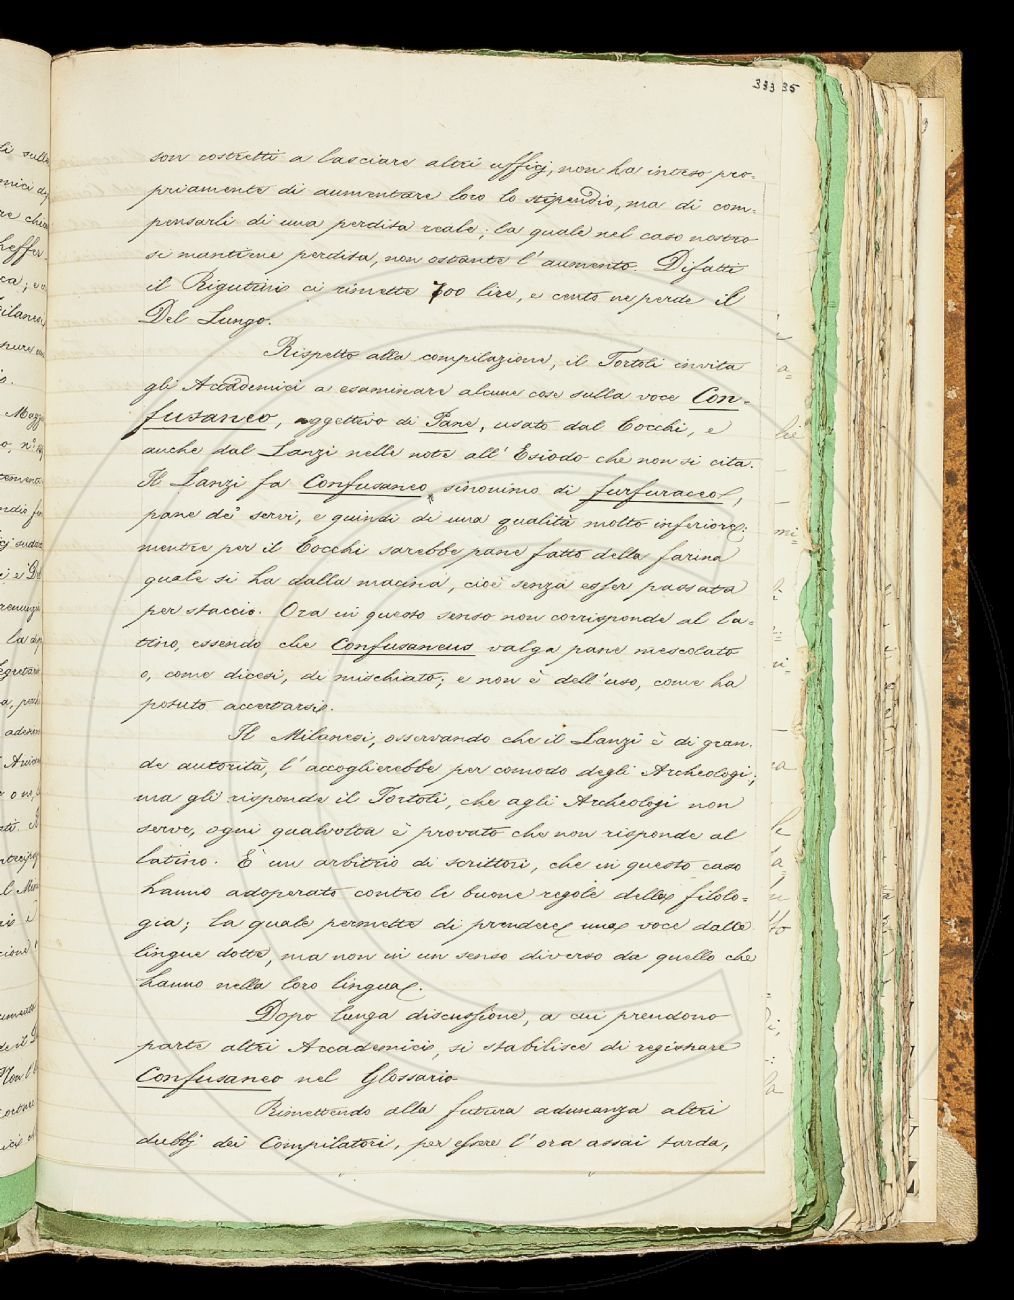 333 35
son costretti a lasciare altri uffizj, non ha inteso pro=
priamente di aumentare loro lo stipendio, ma di com=
pensarli di una perdita reale; la quale nel caso nostro
si mantiene perdita, non ostante l'aumento. Difatti
il Rigutini ci rimette 700 lire, e cento ne perde il
Del Lungo.
Rispetto alla compilazione, il Tortoli invita
gli Accademici a esaminare alcune cose sulla voce Con=
fusaneo, aggettivo di Pane, usato dal Cocchi, e
anche dal Lanzi nelle note all'Esiodo che non si cita.
Il Lanzi fa Confusaneo sinonimo di furfuraceo,
pane de' servi, e quindi di una qualità molto inferiore:
mentre per il Cocchi sarebbe pane fatto della farina
quale si ha dalla macina, cioè senza esser passata
per staccio. Ora in questo senso non corrisponde al la=
tino, essendo che Confusaneus valga pane mescolato
o, come dicesi, di mischiato; e non è dell'uso, come ha
potuto accertarsi.
Il Milanesi, osservando che il Lanzi è di gran=
de autorità, l'accoglierebbe per comodo degli Archeologi;
ma gli risponde il Tortoli, che agli Archeologi non
serve, ogni qualvolta è provato che non risponde al
latino. È un arbitrio di scrittori, che in questo caso
hanno adoperato contro le buone regole della filolo=
gia; la quale permette di prendere una voce dalle
lingue dotte, ma non in un senso diverso da quello che
hanno nella loro lingua.
Dopo lunga discussione, a cui prendono
parte altri Accademici, si stabilisce di registrare
Confusaneo nel Glossario
Rimettendo alla futura adunanza altri
dubbj dei Compilatori, per essere l'ora assai tarda,